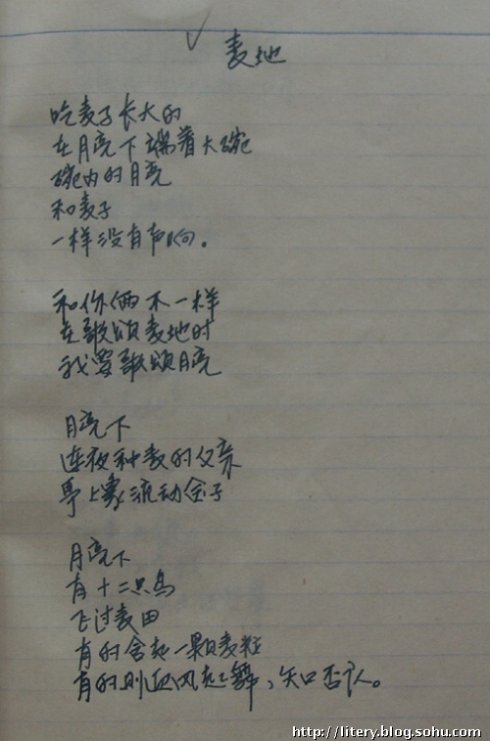 麦地
吃麦子长大的
在月亮下端着大碗
碗内的月亮
和麦子
一样没有声响。
和你俩不一样
在歌颂麦地时
我要歌颂月亮
月亮下
连夜种麦的父亲
身上象流动金子
月亮下
有十二只鸟
飞过麦田
有的含起一颗麦粒
有的则迎风起舞，矢口否认。
http://litery.blog.sohu.com